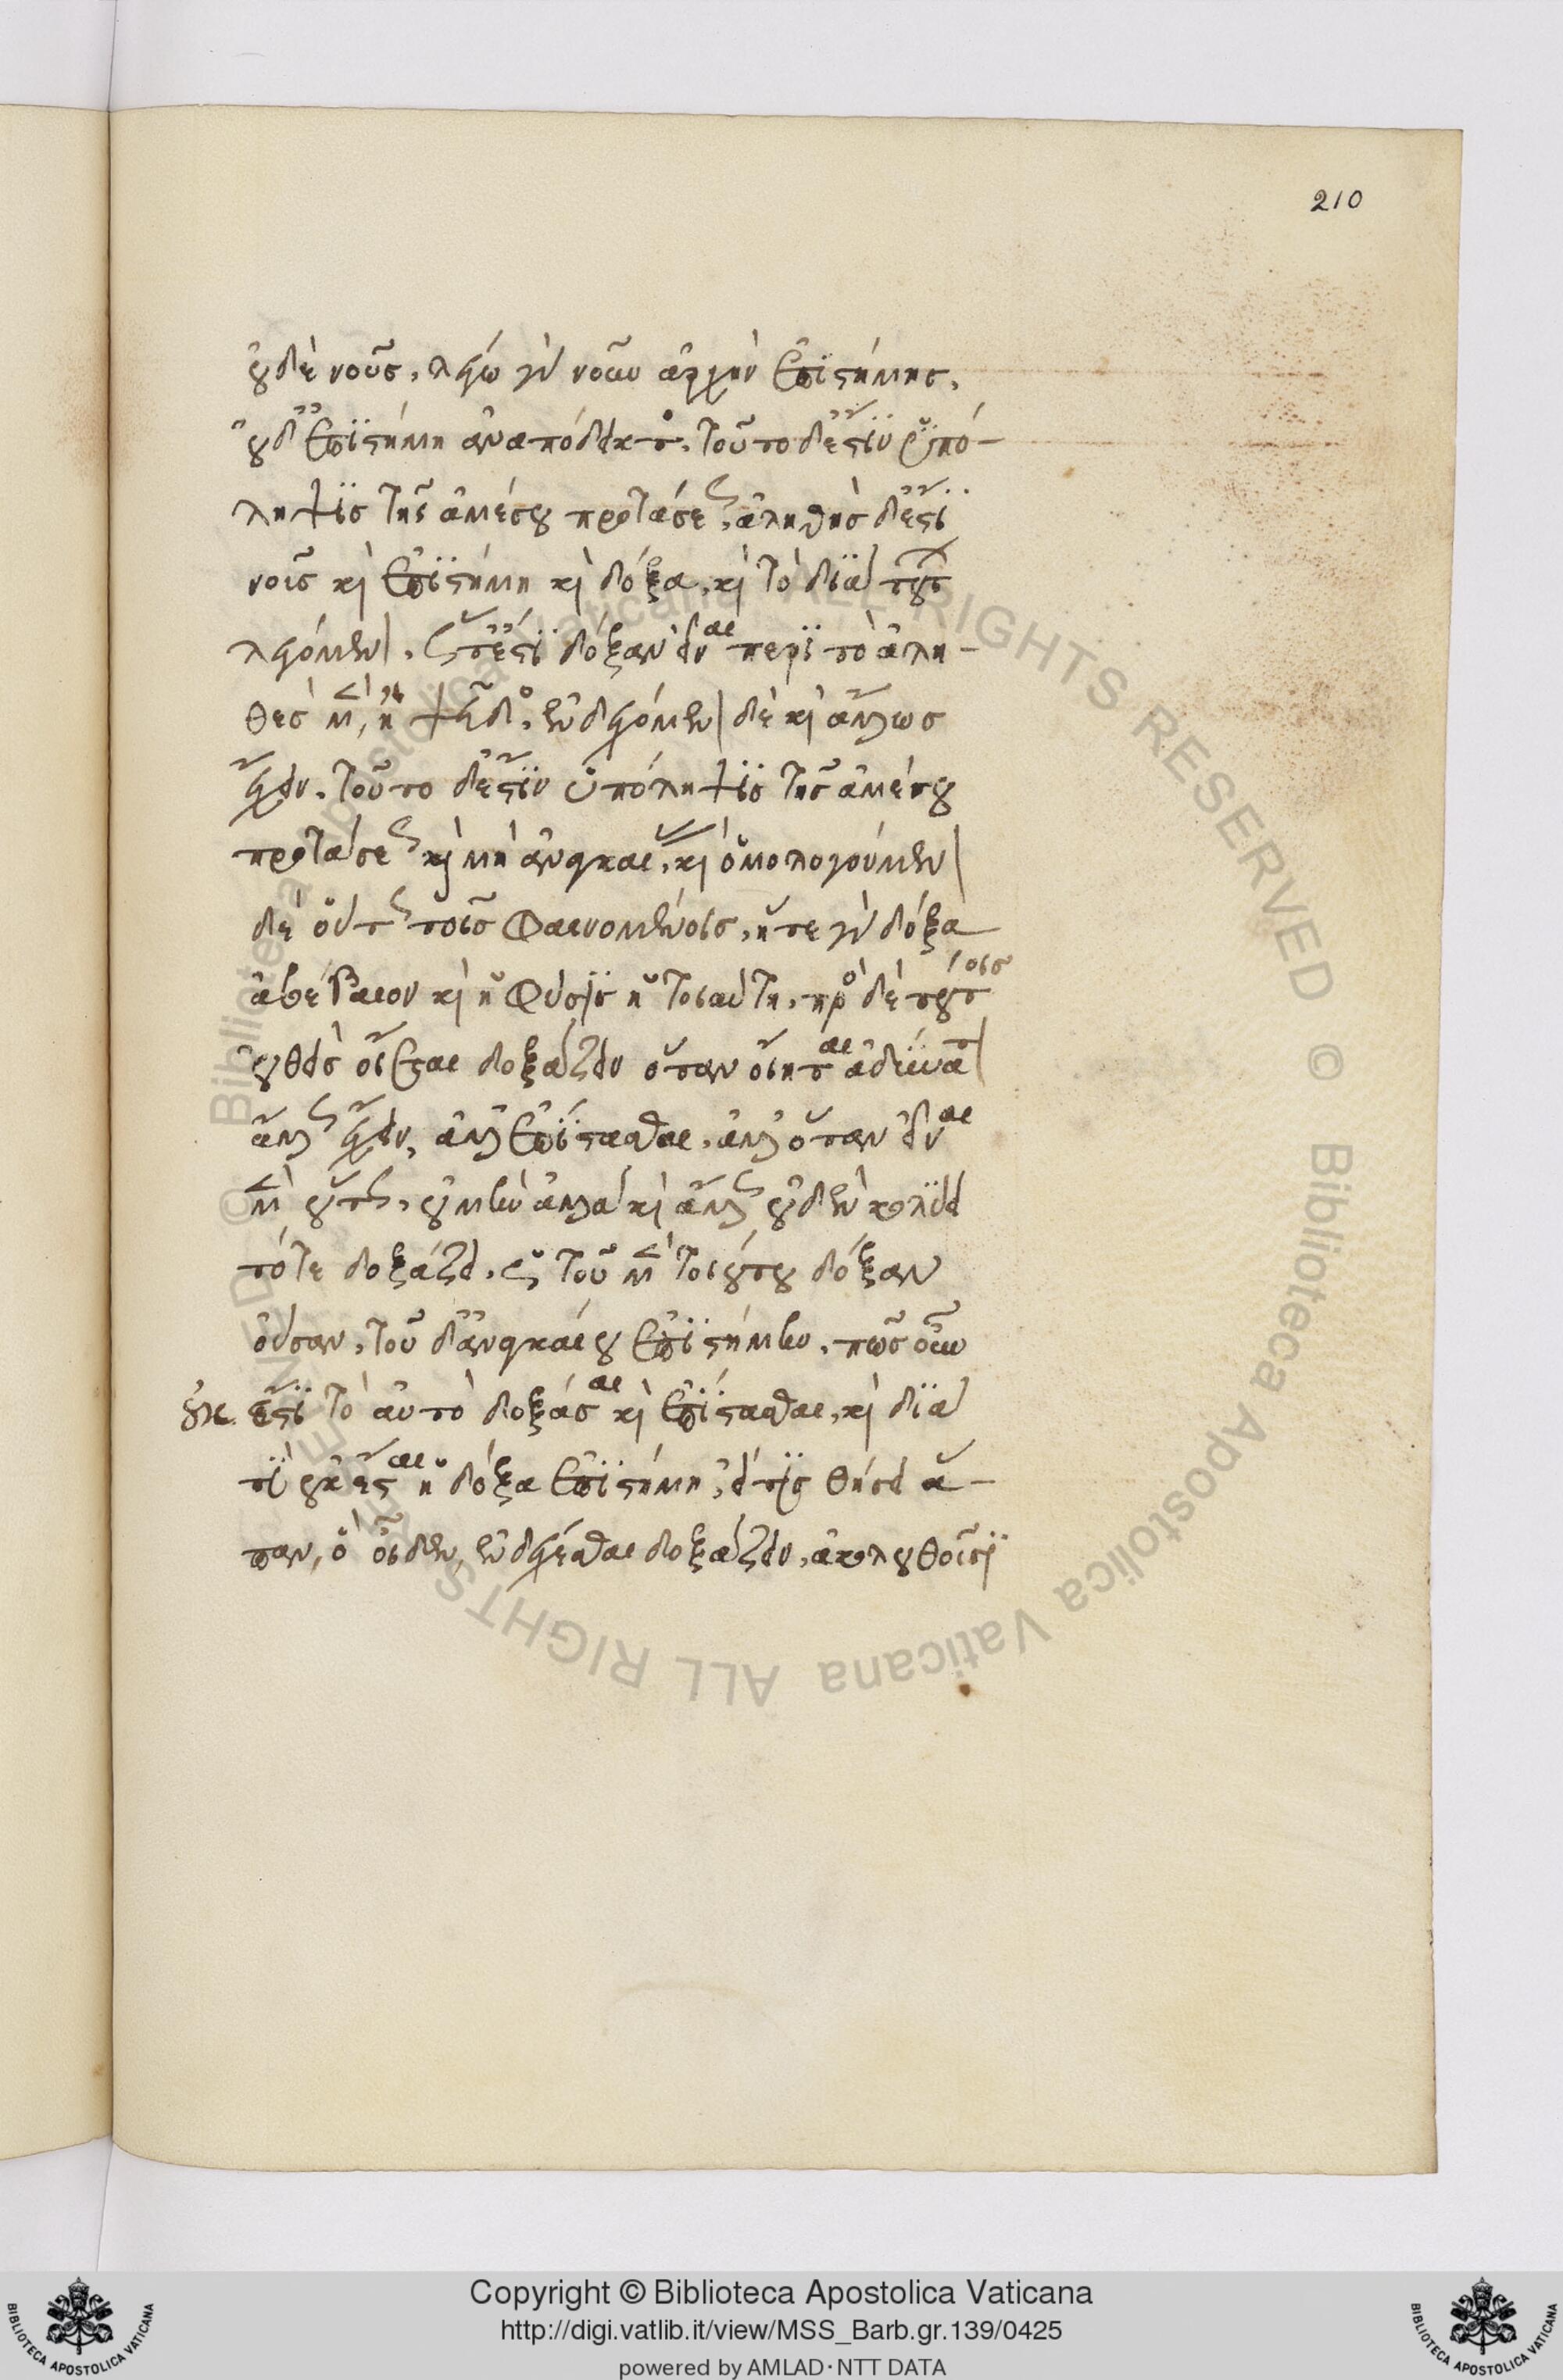 210
οὐδὲ νοῦς, λέγω γὰρ νοῦν ἀρχὴν ἐπιστήμης,
οὐδ' ἐπιστήμη ἀναπόδεικτος. τοῦτο δ' ἐστὶν ὑπό-
ληψις τῆς ἀμέσου προτάσεως, ἀληθὴς δ' ἐστὶ
νοῦς καὶ ἐπιστήμη καὶ δόξα, καὶ τὸ διὰ τούτων
λεγόμενον, ὥστ' ἐστὶ δόξαν εἶναι περὶ τὸ ἀλη-
θὲς μὲν, ἢ ψεῦδος, ἐνδεχόμενον δὲ καὶ ἄλλως
ἔχειν. τοῦτο δ' ἐστὶν ὑπόληψις τῆς ἀμέσου
προτάσεως καὶ μὴ ἀναγκαίας, καὶ ὁμολογούμενον
δὲ οὕτως τοῖς φαινομένοις, ἥ τε γὰρ δόξα
ἀβέβαιον καὶ ἡ φύσις ἡ τοιαύτη, πρὸς δὲ τούτοις
οὐθεὶς οἴεται δοξάζειν ὅταν οἴηται ἀδύνατον
ἄλλως ἔχειν, ἀλλ' ἐπίστασθαι, ἀλλ' ὅταν εἶναι
μὲν οὕτως, οὐ μὴν ἀλλὰ καὶ ἄλλως οὐδὲν κωλύει
τότε δοξάζει, ὡς τοῦ μὲν τοιούτου δόξαν
οὖσαν, τοῦ δ' ἀναγκαίου ἐπιστήμην, πῶς οὖν
ἐστὶ τὸ αὐτὸ δοξάσαι καὶ ἐπίστασθαι, καὶ διὰ
τί οὐκ ἔσται ἡ δόξα ἐπιστήμη, εἴ τις θήσει ἅ-
παν, ὃ οἶδεν, ἐνδέχεσθαι δοξάζειν, ἀκολουθοῦσι
Copyright © Biblioteca Apostolica Vaticana
http://digi.vatlib.it/view/MSS_Barb.gr.139/0425
powered by AMLAD·NTT DATA